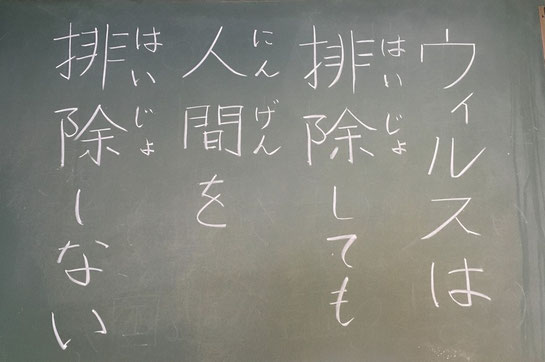 ウィルスは
排除しても
はいじょ
人間を
にんげん
排除しない
はいじょ